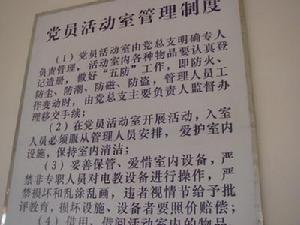 党员活动室管理制度
(1)党员活动室由党总支明确专人
负责管理。活动室内各种物品要认真登
记造册，做好"五防"工作，即防火、
防尘、防潮、防磁、防盗，管理人员工
作变动时，由党总支主要负责人监督办
理移交手续；
(2)在党员活动室开展活动，入室
人员必须服从管理人员安排，爱护室内
设施，保持室内清洁；
(3)妥善保管、爱惜室内设备，严
禁非专职人员对电教设备进行操作，严
禁损坏和乱涂乱画，违者视情节给予批
评教育，损坏设施、设备者要照价赔偿；
(4)借用、借阅活动室内的物品